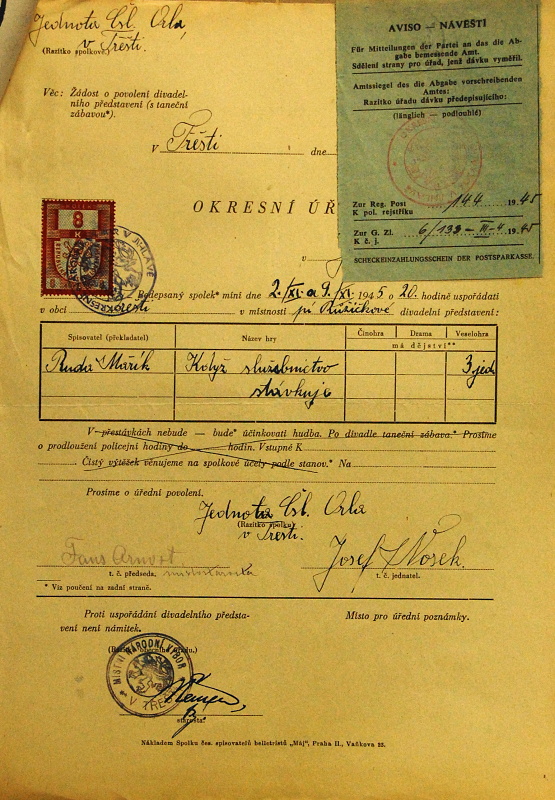 Jednota Čsl. Orla
v Třešti.
(Razítko spolkové.)
Věc: Žádost o povolení divadel-
ního představení (s taneční
zábavou*).
v Třešti dne
OKRESNÍ ÚŘ
AVISO — NÁVĚSTÍ
Für Mitteilungen der Partei an das die Ab-
gabe bemessende Amt.
Sdělení strany pro úřad, jenž dávku vyměřil.
Amtssiegel des die Abgabe vorschreibenden
Amtes:
Razítko úřadu dávku předepisujícího:
(länglich — podlouhlé)
Zur Reg. Post
K pol. rejstříku 144 1945
Zur G. Zl.
K č. j. 6/133-III-4 1945
SCHECKEINZAHLUNGSSCHEIN DER POSTSPARKASSE.
8
K
V JIHLAVĚ
v
Podepsaný spolek* míní dne 2./XI. a 9./XI. 1945 o 20. hodině uspořádati
v obci Třešti v místnosti pí Růžičkové divadelní představení:
Spisovatel (překladatel) Název hry Činohra Drama Veselohra
má dějství**
Ruda Mařík Když služebnictvo 3 jed
stávkuje
V přestávkách nebude — bude* účinkovati hudba. Po divadle taneční zábava.* Prosíme
o prodloužení policejní hodiny do hodin. Vstupné K
Čistý výtěžek věnujeme na spolkové účely podle stanov.* Na
Prosíme o úřední povolení.
Jednota Čsl. Orla
(Razítko spolku)
v Třešti.
Josef Nosek.
t. č. předseda, t. č. jednatel.
* Viz poučení na zadní straně.
Proti uspořádání divadelního představ-
ení není námitek.
Místo pro úřední poznámky.
(Razítko obecního úřadu.)
MÍSTNÍ NÁRODNÍ VÝBOR
V TŘEŠTI
starosta.
Nákladem Spolku čes. spisovatelů beletristů „Máj", Praha II., Vaňkova 23.